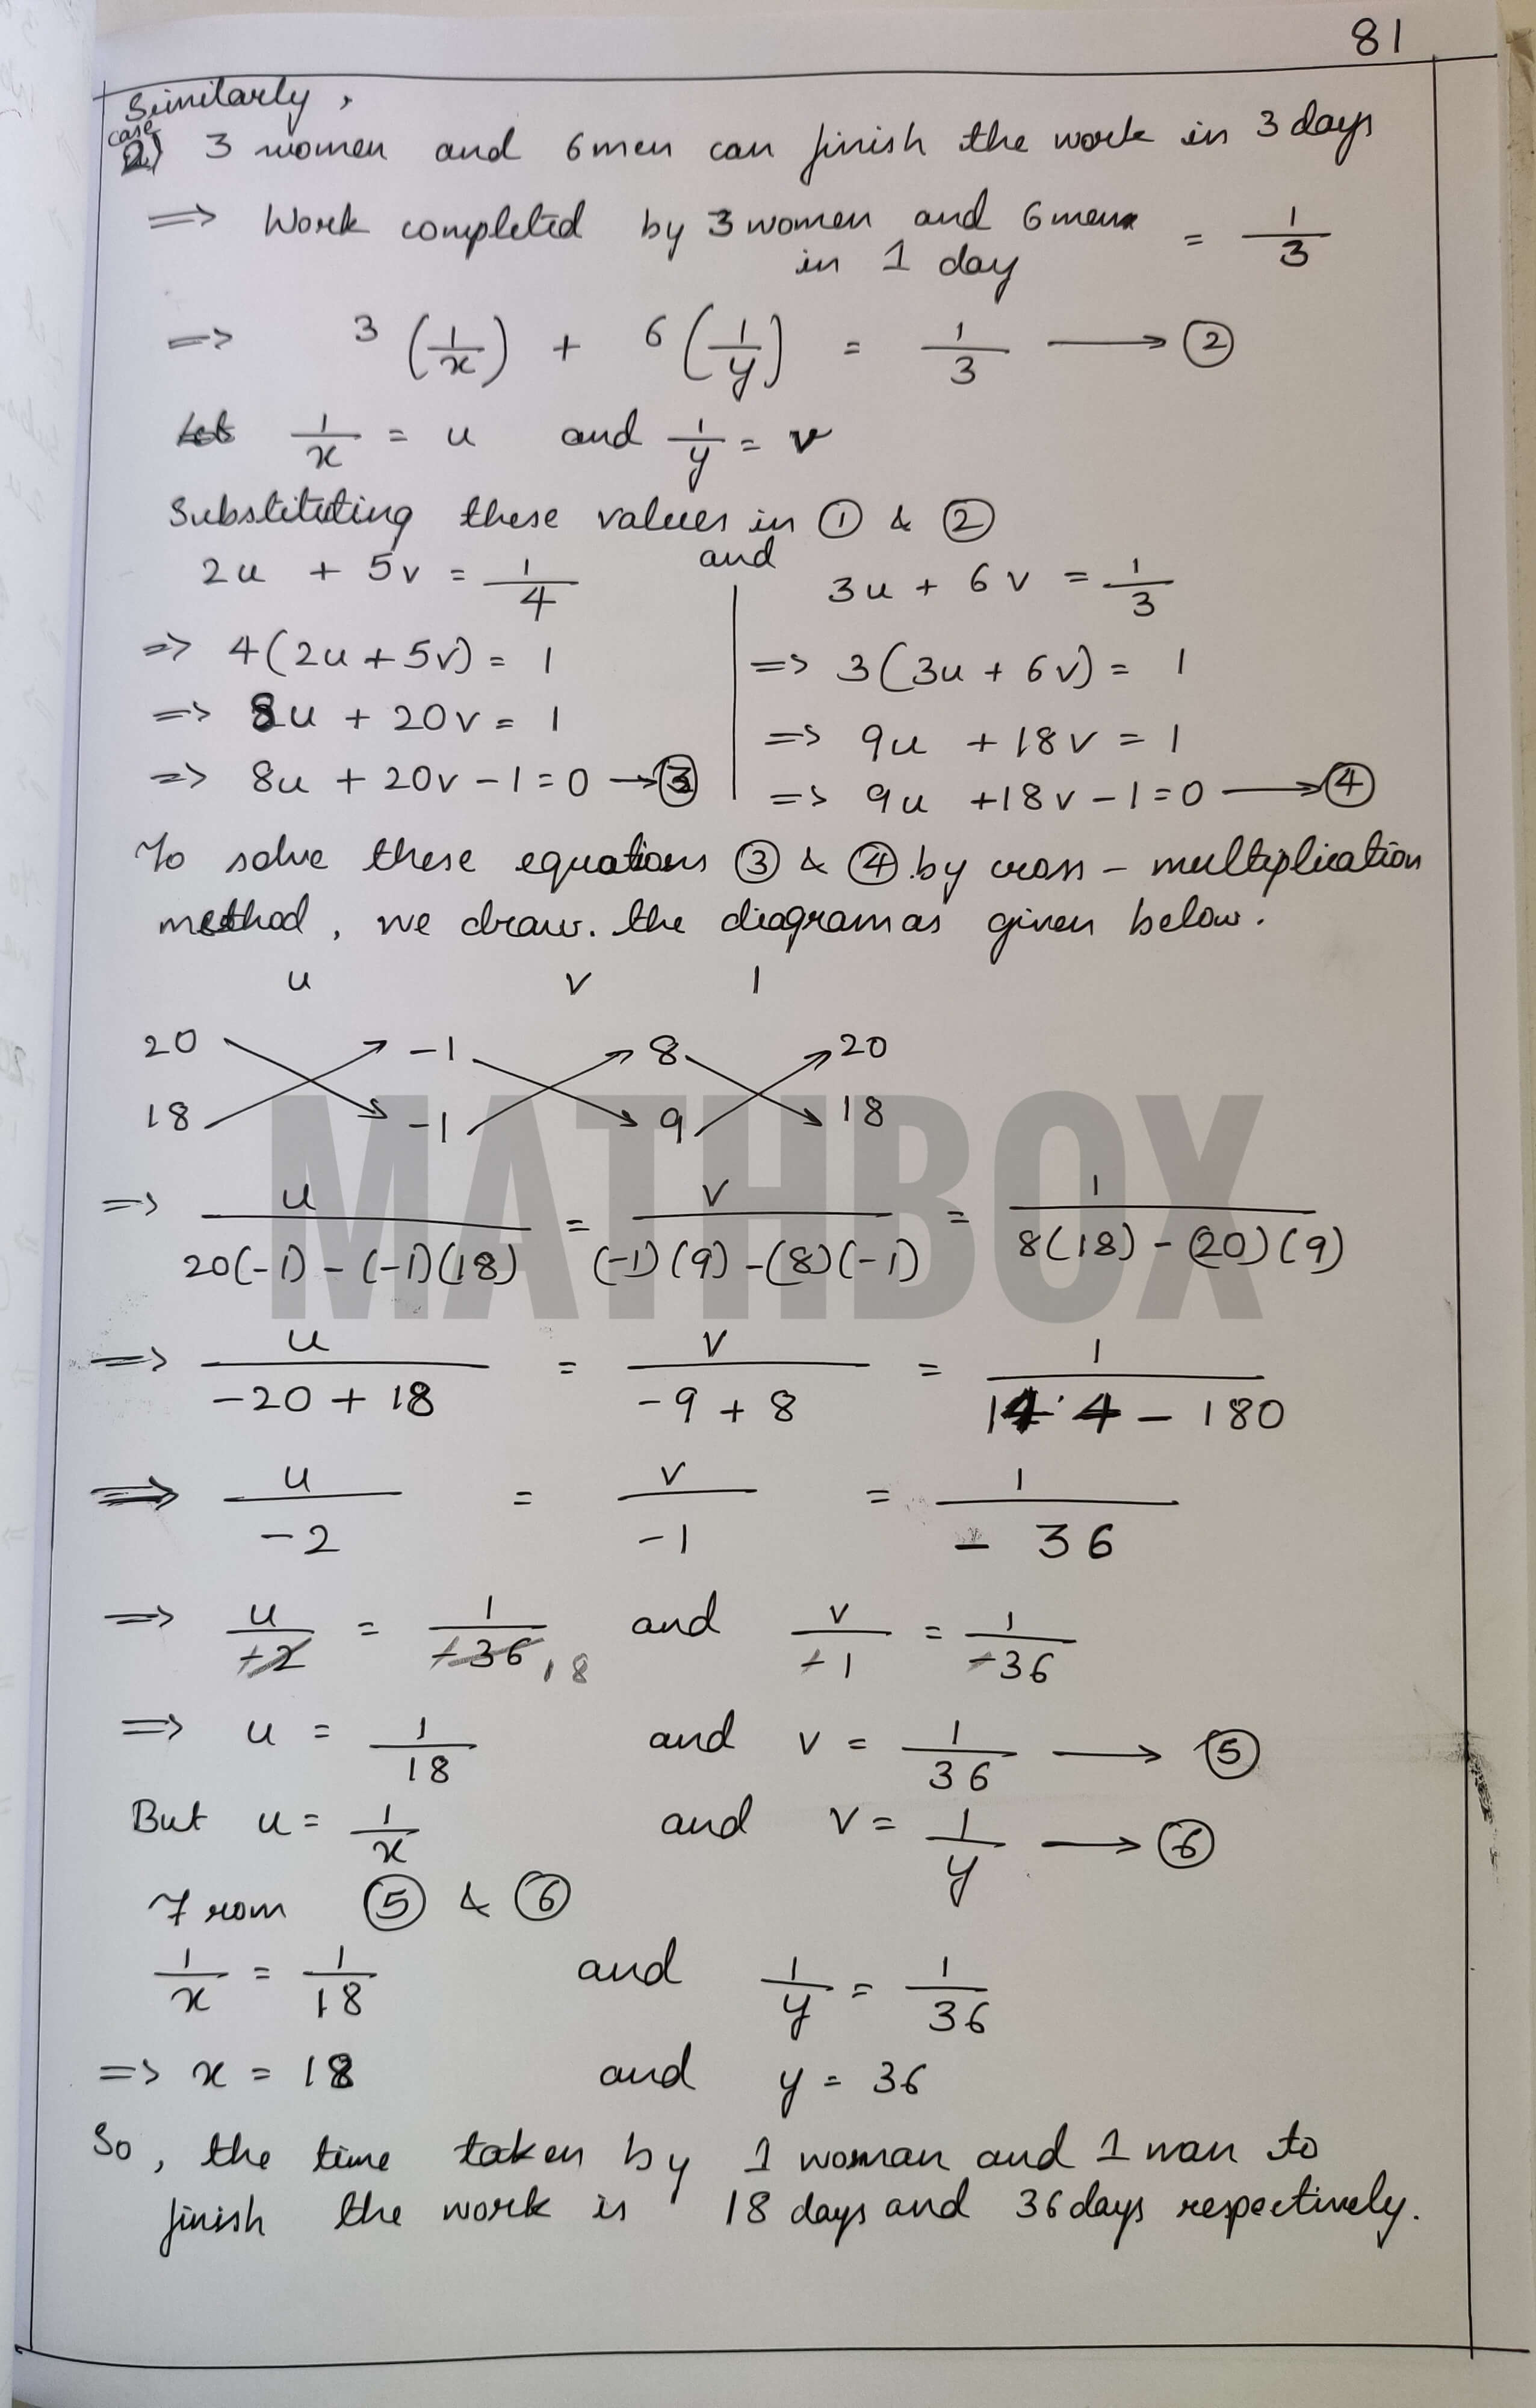 81
Similarly,
case
2) 3 women and 6 men can finish the work in 3 days
=> Work completed by 3 women and 6 men = 1/3
in 1 day
=> 3 (1/x) + 6 (1/y) = 1/3 → ②
Let 1/x = u and 1/y = v
Substituting these values in ① & ②
2u + 5v = 1/4 and 3u + 6v = 1/3
=> 4(2u + 5v) = 1 | => 3(3u + 6v) = 1
=> 8u + 20v = 1 | => 9u + 18v = 1
=> 8u + 20v - 1 = 0 → ③ | => 9u + 18v - 1 = 0 → ④
To solve these equations ③ & ④ by cross - multiplication
method, we draw. the diagram as given below.
u v 1
20 -1 8 20
18 -1 9 18
MATHBOX
=> u/(20(-1) - (-1)(18)) = v/((-1)(9) - (8)(-1)) = 1/(8(18) - (20)(9))
=> u/(-20 + 18) = v/(-9 + 8) = 1/(144 - 180)
=> u/-2 = v/-1 = 1/-36
=> u/-2 = 1/-36 18 and v/-1 = 1/-36
=> u = 1/18 and v = 1/36 → ⑤
But u = 1/x and v = 1/y → ⑥
From ⑤ & ⑥
1/x = 1/18 and 1/y = 1/36
=> x = 18 and y = 36
So, the time taken by 1 woman and 1 man to
finish the work is 18 days and 36 days respectively.